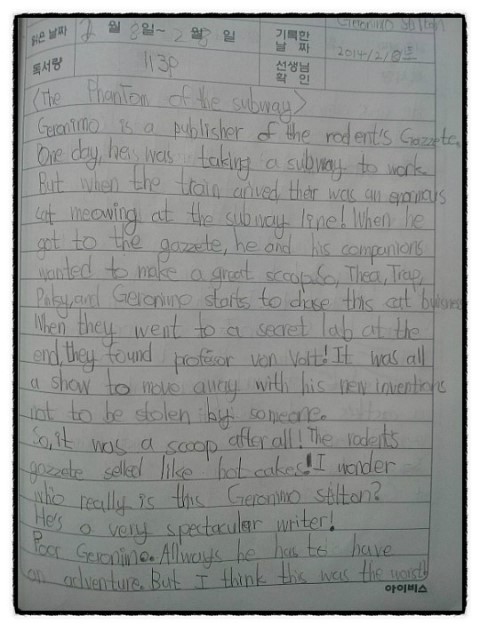 Geronimo Stilton
읽은 날짜 2 월 8일~ 2월 8 일 기록한 날 짜 2014/2/8토
독서량 113p 선생님 확 인
<The Phantom of the subway>
Geronimo is a publisher of the rodent's Gazzete.
One day, he was taking a subway to work.
But when the train arived ther was an enormous
cat meowing at the subway line! When he
got to the gazzete, he and his companions
wanted to make a great scoop. So, Thea, Trap,
Patsy, and Geronimo starts to chase this cat business
When they went to a secret lab at the
end, they found profesor von Volt! It was all
a show to move away with his new inventions
not to be stolen by someone.
So, it was a scoop after all! The rodent's
gazzete selled like hot cakes! I wonder
who really is this Geronimo stilton?
He's a very spectacular writer!
Poor Geronimo. Allways he has to have
an adventure. But I think this was the worst!
아이비스